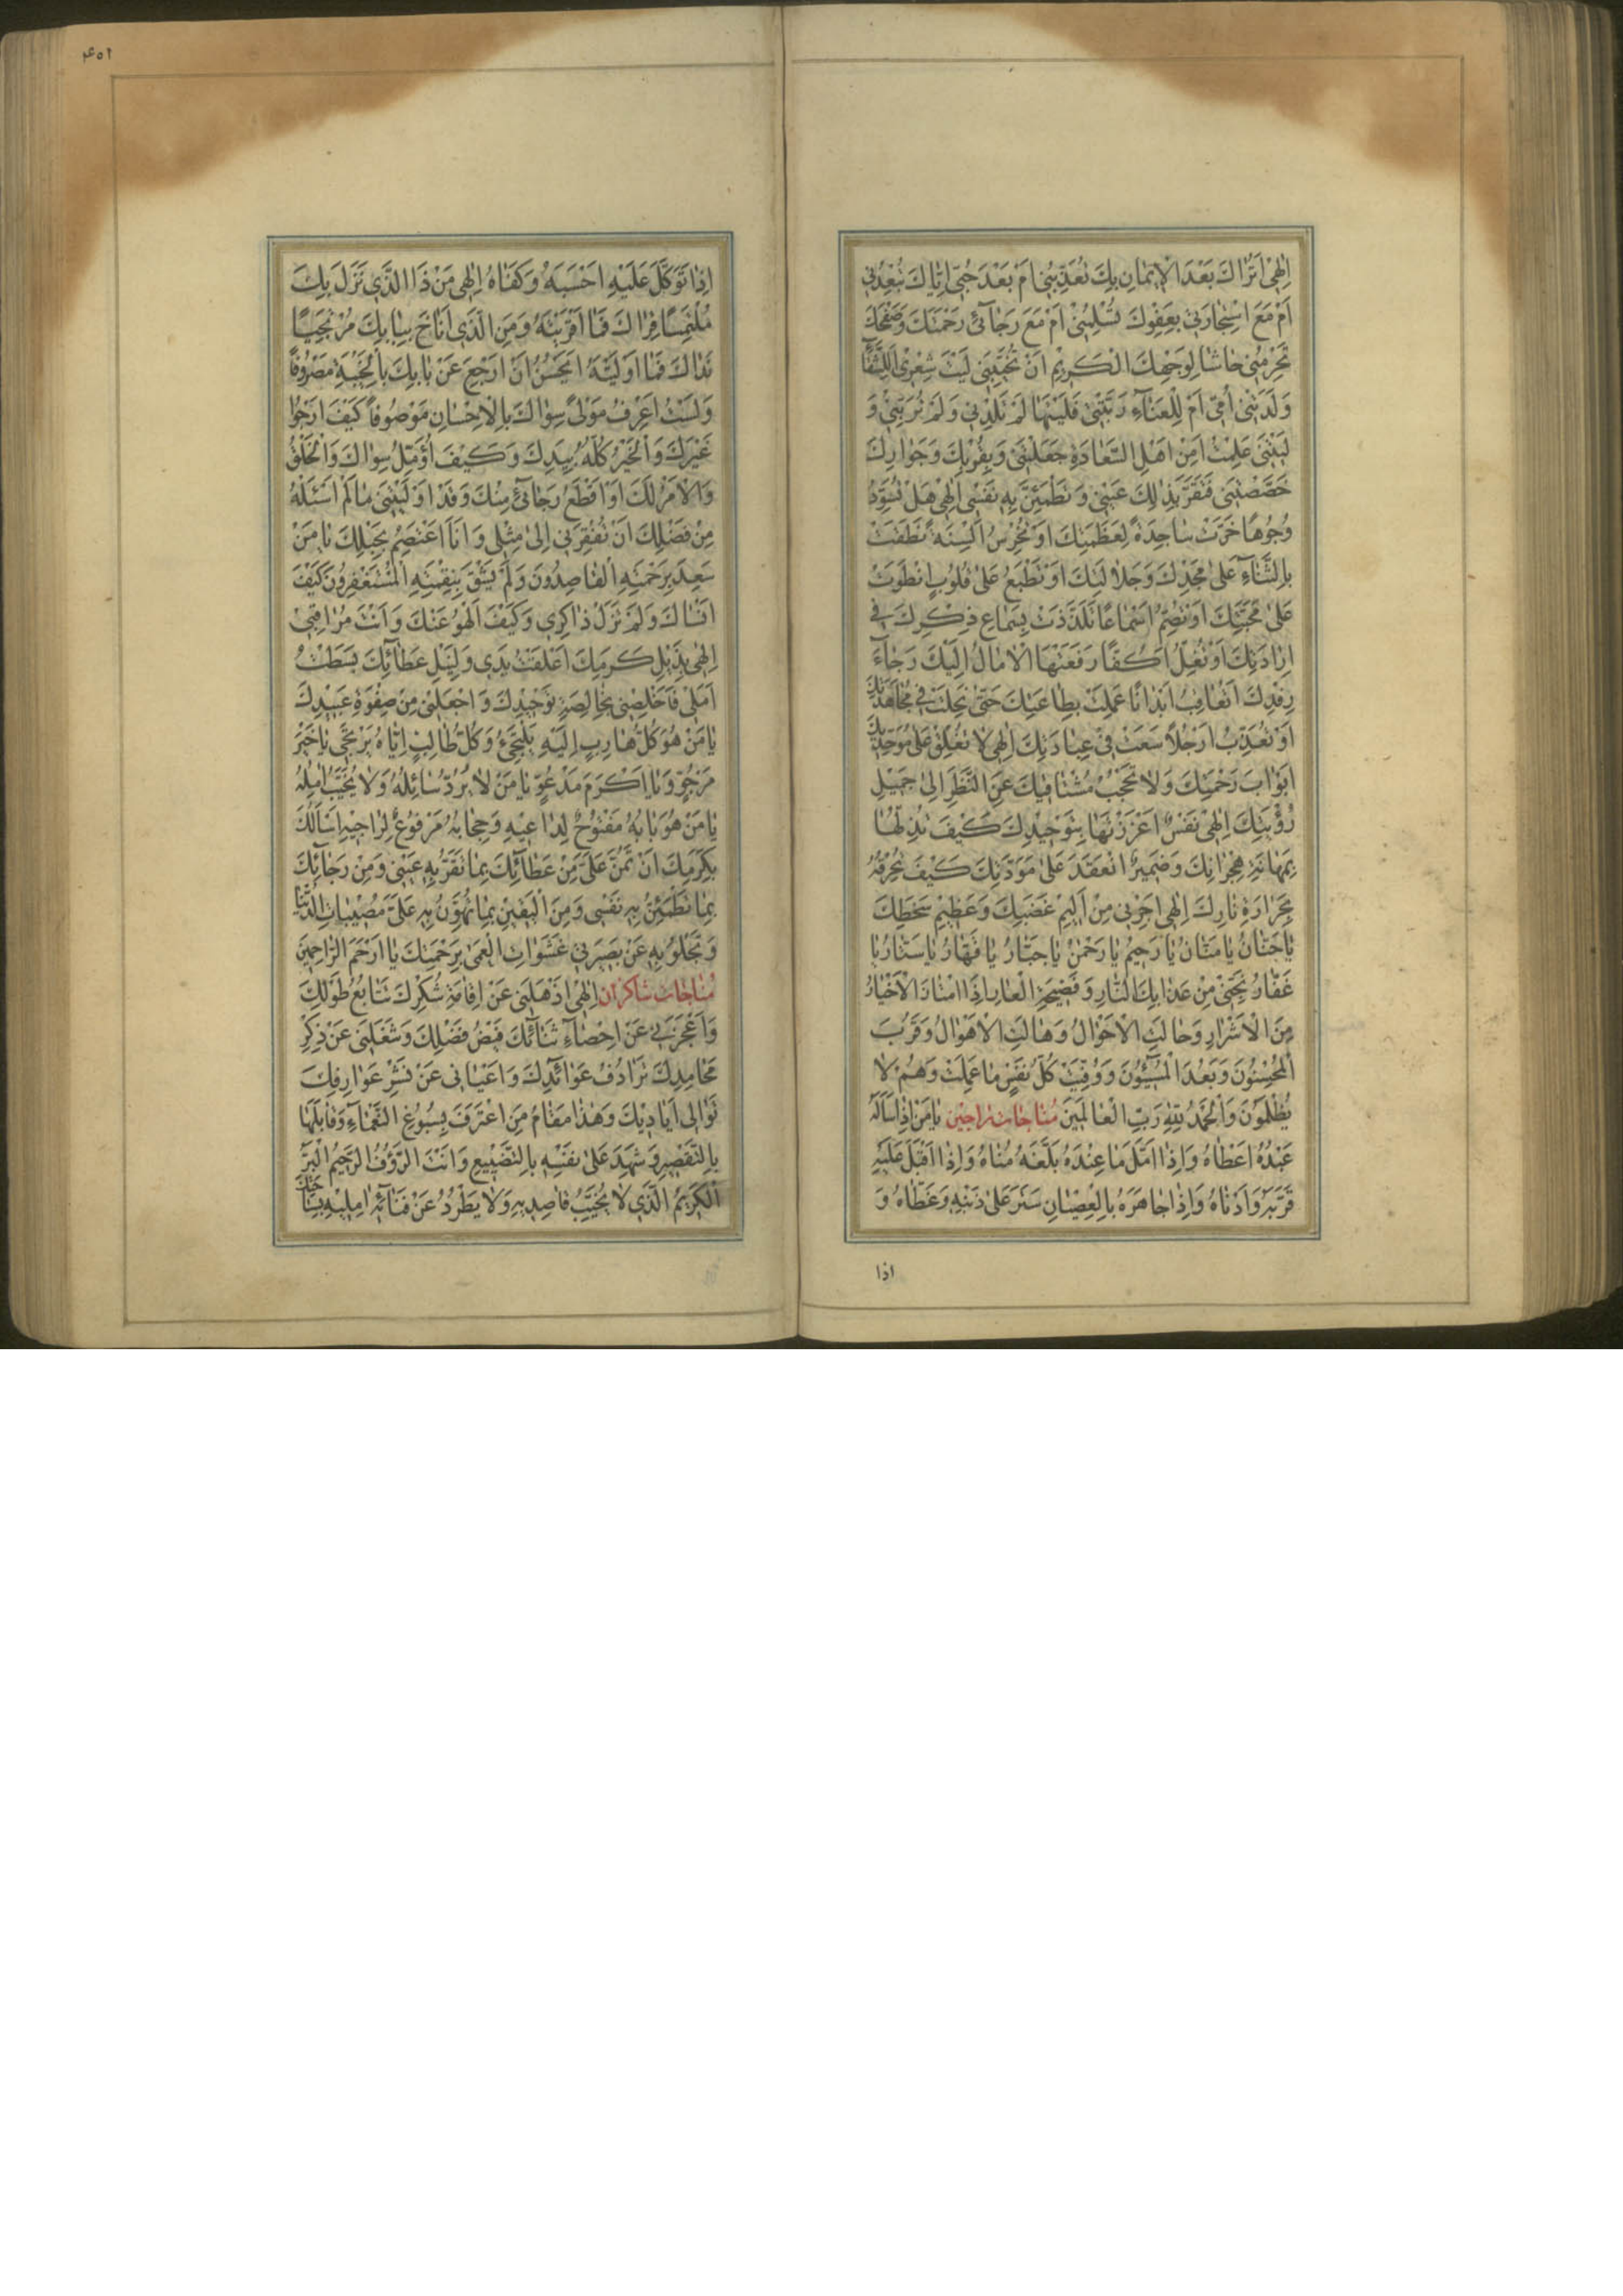 اِلٰهی اَتُرَاكَ بَعْدَ الْاِیمَانِ بِكَ تُعَذِّبُنِی اَمْ بَعْدَ حُبّی اِیَّاكَ تُبَعِّدُنِی
اَمْ مَعَ اسْتِجَارَتِی بِعَفْوِكَ تُسْلِمُنِی اَمْ مَعَ رَجَآئِی رَحْمَتَكَ وَصَفْحَكَ
تَحْرِمُنِی حَاشَا لِوَجْهِكَ الْكَرِیمِ اَنْ تُخَیِّبَنِی لَیْتَ شِعْرِی اَلِلشَّقَآءِ
وَلَدَتْنِی اُمّی اَمْ لِلْعَنَآءِ رَبَّتْنِی فَلَیْتَهَا لَمْ تَلِدْنِی وَلَمْ تُرَبِّنِی وَ
لَیْتَنِی عَلِمْتُ اَمِنْ اَهْلِ السَّعَادَةِ جَعَلْتَنِی وَبِقُرْبِكَ وَجَوَارِكَ
خَصَّصْتَنِی فَتَقَرَّ بِذٰلِكَ عَیْنِی وَتَطْمَئِنَّ بِهِ نَفْسِی اِلٰهی هَلْ تُسَوِّدُ
وُجُوهًا خَرَّتْ سَاجِدَةً لِعَظَمَتِكَ اَوْ تُخْرِسُ اَلْسِنَةً نَطَقَتْ
بِالثَّنَآءِ عَلٰی مَجْدِكَ وَجَلَالَتِكَ اَوْ تَطْبَعُ عَلٰی قُلُوبٍ انْطَوَتْ
عَلٰی مَحَبَّتِكَ اَوْ تُصِمُّ اَسْمَاعًا تَلَذَّذَتْ بِسَمَاعِ ذِكْرِكَ فی
اِرَادَتِكَ اَوْ تَغُلُّ اَكُفًّا رَفَعَتْهَا الْاٰمَالُ اِلَیْكَ رَجَآءَ
رِفْدِكَ اَتُعَاقِبُ اَبْدَانًا عَمِلَتْ بِطَاعَتِكَ حَتّٰی نَحِلَتْ فی مُجَاهَدَتِكَ
اَوْ تُعَذِّبُ اَرْجُلًا سَعَتْ فی عِبَادَتِكَ اِلٰهی لَا تُغْلِقْ عَلٰی مُوَحِّدِیكَ
اَبْوَابَ رَحْمَتِكَ وَلَا تَحْجُبْ مُشْتَاقِیكَ عَنِ النَّظَرِ اِلٰی جَمِیلِ
رُؤْیَتِكَ اِلٰهی نَفْسٌ اَعْزَزْتَهَا بِتَوْحِیدِكَ كَیْفَ تُذِلُّهَا
بِمَهَانَةِ هِجْرَانِكَ وَضَمِیرٌ انْعَقَدَ عَلٰی مَوَدَّتِكَ كَیْفَ تُحْرِقُهُ
بِحَرَارَةِ نَارِكَ اِلٰهی اَجِرْنِی مِنْ اَلِیمِ غَضَبِكَ وَعَظِیمِ سَخَطِكَ
یَا حَنَّانُ یَا مَنَّانُ یَا رَحِیمُ یَا رَحْمٰنُ یَا جَبَّارُ یَا قَهَّارُ یَا سَتَّارُ یَا
غَفَّارُ نَجِّنِی مِنْ عَذَابِكَ النَّارِ وَفَضِیحَةِ الْعَارِ اِذَا امْتَازَ الْاَخْیَارُ
مِنَ الْاَشْرَارِ وَحَالَتِ الْاَحْوَالُ وَهَالَتِ الْاَهْوَالُ وَقَرُبَ
الْمُحْسِنُونَ وَبَعُدَ الْمُسِیٓئُونَ وَوُفِّیَتْ كُلُّ نَفْسٍ مَا عَمِلَتْ وَهُمْ لَا
یُظْلَمُونَ وَالْحَمْدُ لِلّٰهِ رَبِّ الْعَالَمِینَ مُنَاجَات رَاجِین یَا مَنْ اِذَا سَاَلَهُ
عَبْدُهُ اَعْطَاهُ وَاِذَا اَمَّلَ مَا عِنْدَهُ بَلَّغَهُ مُنَاهُ وَاِذَا اَقْبَلَ عَلَیْهِ
قَرَّبَهُ وَاَدْنَاهُ وَاِذَا جَاهَرَهُ بِالْعِصْیَانِ سَتَرَ عَلٰی ذَنْبِهِ وَغَطَّاهُ وَ
اذا
۴۵۱
اِذَا تَوَكَّلَ عَلَیْهِ اَحْسَبَهُ وَكَفَاهُ اِلٰهی مَنْ ذَا الَّذِی نَزَلَ بِكَ
مُلْتَمِسًا قِرَاكَ فَمَا اَقْرَیْتَهُ وَمَنِ الَّذِی اَنَاخَ بِبَابِكَ مُرْتَجِیًا
نَدَاكَ فَمَا اَوْلَیْتَهُ اَیَحْسُنُ اَنْ اَرْجِعَ عَنْ بَابِكَ بِالْخَیْبَةِ مَصْرُوفًا
وَلَسْتُ اَعْرِفُ مَوْلیً سِوَاكَ بِالْاِحْسَانِ مَوْصُوفًا كَیْفَ اَرْجُوا
غَیْرَكَ وَالْخَیْرُ كُلُّهُ بِیَدِكَ وَكَیْفَ اُؤَمِّلُ سِوَاكَ وَالْخَلْقُ
وَالْاَمْرُ لَكَ اَوْ اَقْطَعُ رَجَآئِی مِنْكَ وَقَدْ اَوْلَیْتَنِی مَا لَمْ اَسْئَلْهُ
مِنْ فَضْلِكَ اَنْ تُفْقِرَنِی اِلٰی مِثْلِی وَاَنَا اَعْتَصِمُ بِحَبْلِكَ یَا مَنْ
سَعِدَ بِرَحْمَتِهِ الْقَاصِدُونَ وَلَمْ یَشْقَ بِنِقْمَتِهِ الْمُسْتَغْفِرُونَ كَیْفَ
اَنْسَاكَ وَلَمْ تَزَلْ ذَاكِرِی وَكَیْفَ اَلْهُو عَنْكَ وَاَنْتَ مُرَاقِبِی
اِلٰهی بِذَیْلِ كَرَمِكَ اَعْلَقْتُ یَدِی وَلِنَیْلِ عَطَآئِكَ بَسَطْتُ
اَمَلِی فَاَخْلِصْنِی بِخَالِصَةِ تَوْحِیدِكَ وَاجْعَلْنِی مِنْ صِفْوَةِ عَبِیدِكَ
یَا مَنْ هُوَ كُلُّ هَارِبٍ اِلَیْهِ یَلْتَجِئُ وَكُلُّ طَالِبٍ اِیَّاهُ یَرْتَجِی یَا خَیْرَ
مَرْجُوٍّ وَیَا اَكْرَمَ مَدْعُوٍّ یَا مَنْ لَا یُرَدُّ سَائِلُهُ وَلَا یُخَیَّبُ اٰمِلُهُ
یَا مَنْ هُوَ بَابُهُ مَفْتُوحٌ لِدَاعِیهِ وَحِجَابُهُ مَرْفُوعٌ لِرَاجِیهِ اَسْاَلُكَ
بِكَرَمِكَ اَنْ تَمُنَّ عَلَیَّ مِنْ عَطَآئِكَ بِمَا تَقَرُّ بِهِ عَیْنِی وَمِنْ رَجَآئِكَ
بِمَا تَطْمَئِنُّ بِهِ نَفْسِی وَمِنَ الْیَقِینِ بِمَا تُهَوِّنُ بِهِ عَلَیَّ مُصِیبَاتِ الدُّنْیَا
وَتَجْلُو بِهِ عَنْ بَصِیرَتِی غَشَوَاتِ الْعَمٰی بِرَحْمَتِكَ یَا اَرْحَمَ الرَّاحِمِینَ
مُنَاجَات شَاكِرَان اِلٰهی اَذْهَلَنِی عَنْ اِقَامَةِ شُكْرِكَ تَتَابُعُ طَوْلِكَ
وَاَعْجَزَنِی عَنْ اِحْصَآءِ ثَنَآئِكَ فَیْضُ فَضْلِكَ وَشَغَلَنِی عَنْ ذِكْرِ
مَحَامِدِكَ تَرَادُفُ عَوَآئِدِكَ وَاَعْیَانِی عَنْ نَشْرِ عَوَارِفِكَ
تَوَالِی اَیَادِیكَ وَهٰذَا مَقَامُ مَنِ اعْتَرَفَ بِسُبُوغِ النَّعْمَآءِ وَقَابَلَهَا
بِالتَّقْصِیرِ وَشَهِدَ عَلٰی نَفْسِهِ بِالتَّضْیِیعِ وَاَنْتَ الرَّؤُفُ الرَّحِیمُ الْبَرُّ
الْكَرِیمُ الَّذِی لَا یُخَیِّبُ قَاصِدِیهِ وَلَا یَطْرُدُ عَنْ فَنَآئِهِ اٰمِلِیهِ بِسَاحَتِكَ